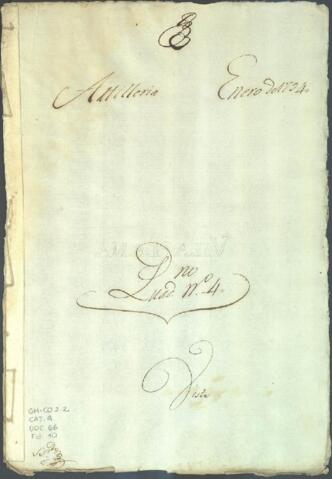 Artilleria Enero de 1794.
Quad.no n.o 4.
Visto
GM-CO 2.2
CAT. 9
DOC. 66
Fol. 10